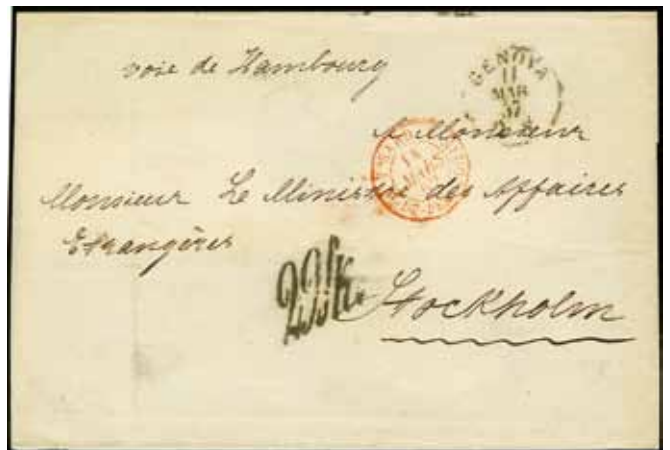 voie de Hambourg
GENOVA
11
MAR
57
A Monsieur
Monsieur Le Ministre des Affaires
Etrangères
Stockholm